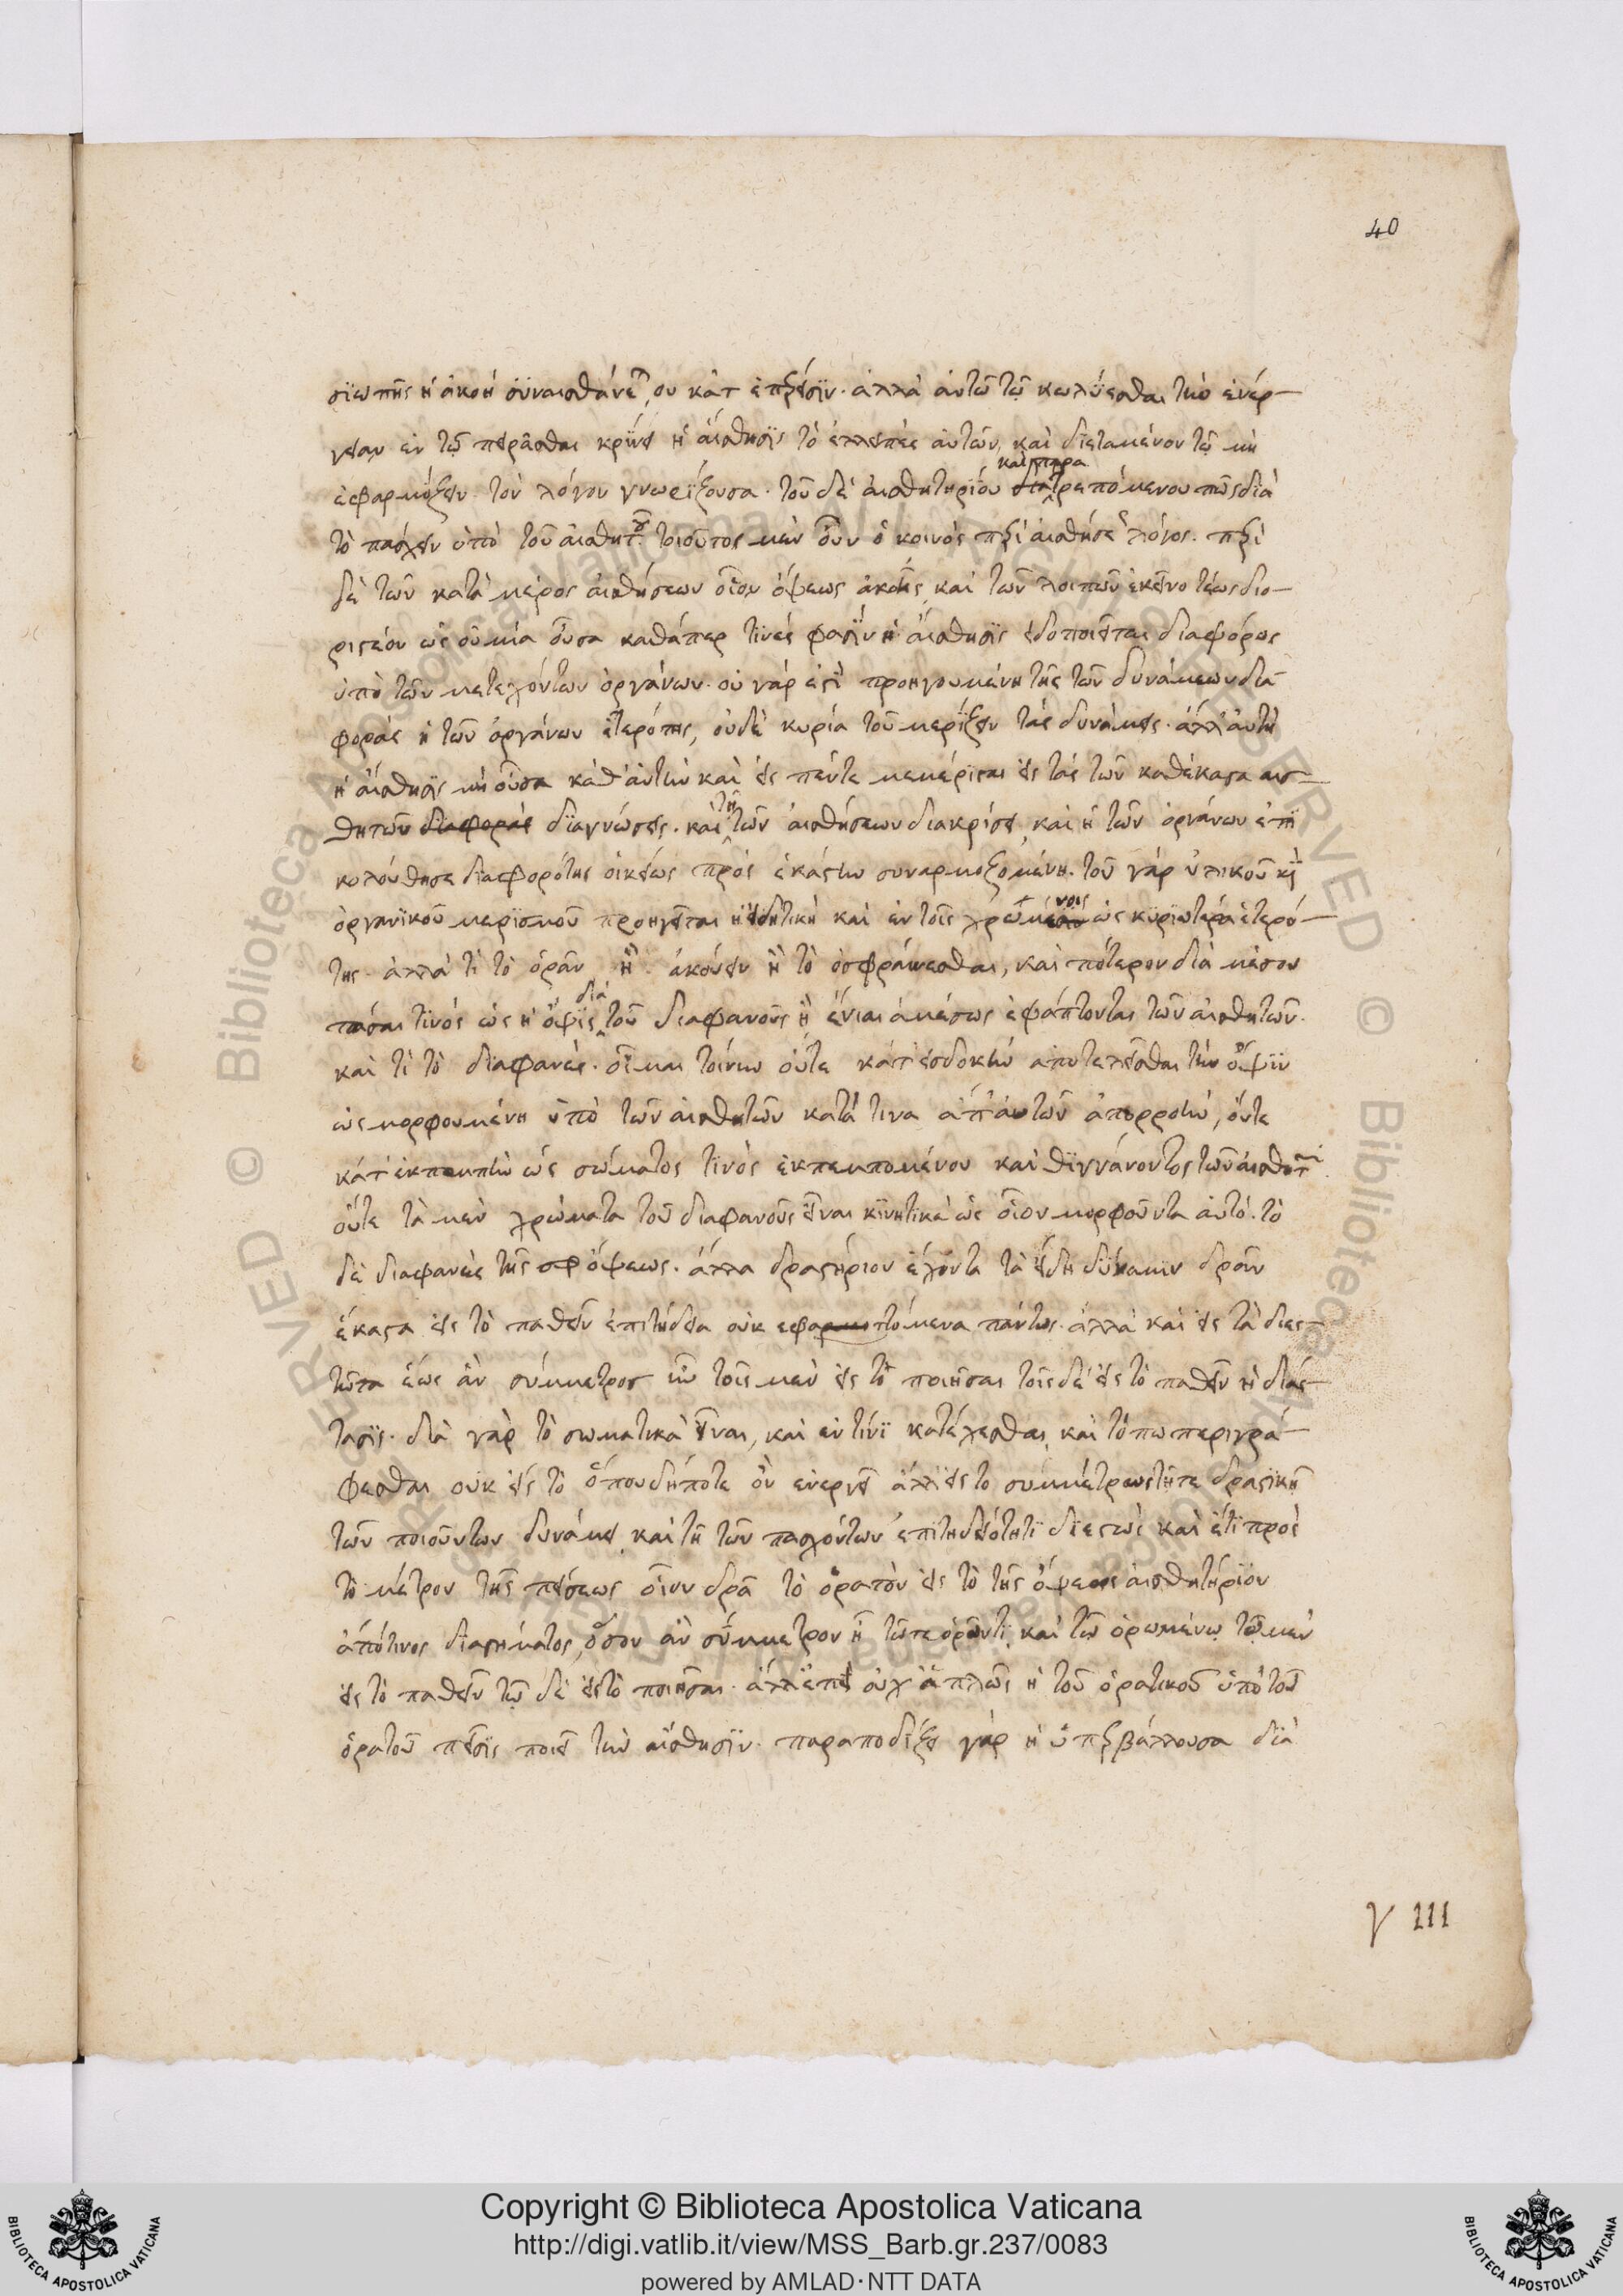 40
σϊωπῆς ἡ ἀκοὴ συναισθάνε, ου κατ ἐπέρεισϊν. ἀλλὰ αὐτῶ τῷ κωλύεσθαι τὴν ἐνέρ-
γειαν ἐν τῷ πειρᾶσθαι κρίνει ἡ αἴσθησϊς τὸ ἐλλειπὲς αὐτῶν, καὶ διϊσταμένον τῷ μὴ
ἐφαρμόζειν τὸν λόγον γνωρίζουσα. τοῦ δὲ αἰσθητηρίου
καὶ παρα
τρεπόμενου πως διὰ
τὸ πάσχειν ὑπὸ τοῦ αἰσθητοῦ. τοιοῦτος μὲν οὖν ὁ κοινὸς περὶ αἰσθήσε λόγος. περὶ
δὲ τῶν κατὰ μέρος αἰσθήσεων οἷον ὄψεως ἀκοῆς, καὶ τῶν λοιπῶν ἐκεῖνο τέως διο-
ριστέον ὡς οὐ μία οὖσα καθάπερ τινές φασϊν ἡ αἴσθησϊς εἰδοποιεῖται διαφόρως
ὑπὸ τῶν μετεχόντων ὀργάνων. οὐ γάρ ἐστϊ προηγουμένη τῆς τῶν δυνάμεων δια-
φορᾶς ἡ τῶν ὀργάνων ἑτερότης, οὐδὲ κυρία τοῦ μερίζειν τὰς δυνάμεις. ἀλλ' αὐτὴ
ἡ αἴσθησϊς μὴ οὖσα καθ' αὑτὴν καὶ εἰς πέντε μεμέρισται εἰς τὰς τῶν καθέκαστα αισ-
θητῶν διαφορὰς διαγνώσεις. καὶ
τῇ
τῶν αἰσθήσεων διακρίσει, καὶ ἡ τῶν ὀργάνων ἐπη-
κολούθησε διαφορότης οἰκείως πρὸς ἑκάστην συναρμοζομένη. τοῦ γὰρ ὑλικοῦ καὶ
ὀργανϊκοῦ μερϊσμοῦ προηγεῖται ἡ εἰδητικὴ καὶ ἐν τοῖς χρωμένοις ὡς κυριωτέρα ἑτερό-
της. ἀλλὰ τί τὸ ὁρᾶν ἢ ἀκούειν ἢ τὸ ὀσφραίνεσθαι, καὶ πότερον διὰ μέσου
πᾶσαι τινὸς ὡς ἡ ὄψϊς
διὰ
τοῦ διαφανοῦς ἢ ἔνιαι ἀμέσως ἐφάπτονται τῶν αἰσθητῶν.
καὶ τί τὸ διαφανές. οἶμαι τοίνυν οὔτε κατ' εἰσδοχὴν ἀποτελεῖσθαι τὴν ὄψϊν
ὡς μορφουμένη ὑπὸ τῶν αἰσθητῶν κατά τινα ἀπ' αὐτῶν ἀπορροὴν, οὔτε
κατ' ἐκπομπὴν ὡς σώματος τινὸς ἐκπεμπομένου καὶ θιγγάνοντος τῶν αἰσθητ
οὔτε τὰ μὲν χρώματα τοῦ διαφανοῦς εἶναι κϊνητικὰ ὡς οἷον μορφοῦντα αὐτό. τὸ
δὲ διαφανὲς τῆς ὄψεως. ἀλλα δραστήριον ἔχοντα τὰ εἴδη δύναμϊν δρᾶν
ἕκαστα εἰς τὸ παθεῖν ἐπιτήδεια οὐκ εφαπτόμενα πάντως. ἀλλὰ καὶ εἰς τὰ διεσ-
τῶτα ἕως ἂν σύμμετρος ᾖ τοῖς μὲν εἰς τὸ ποιῆσαι τοῖς δὲ εἰς τὸ παθεῖν ἡ διάσ-
τασϊς. διὰ γὰρ τὸ σωματικὰ εἶναι, καὶ ἐν τίνϊ κατέχεσθαι, καὶ τόπω περιγρά-
φεσθαι οὐκ εἰς τὸ ὁπουδήποτε ὂν ἐνεργεῖ ἀλλ' εἰς το συμμέτρως τῆτε δραστϊκῇ
τῶν ποιούντων δυνάμει, καὶ τῇ τῶν πασχόντων ἐπϊτηδειότητϊ διεστὼς καὶ ἔτι πρὸς
τὸ μέτρον τῆς πείσεως οἷον δρᾷ τὸ ὁρατὸν εἰς τὸ τῆς ὄψεως αἰσθητήριον
ἀπό τινος διαστήματος, ὅσον ἂν σύμμετρον ᾖ τῶτε ὁρῶντϊ, καὶ τῷ ὁρωμένῳ τῷ μὲν
εἰς τὸ παθεῖν τῷ δὲ εἰς τὸ ποιῆσαι. ἀλλ' ἐπεὶ οὐχ' ἁπλῶς ἡ τοῦ ὁρατικοῦ ὑπὸ τοῦ
ὁρατοῦ πεῖσϊς ποιεῖ τὴν αἴσθησϊν. παραποδίζει γὰρ ἡ ὑπερβάλλουσα διὰ
γ III
Copyright © Biblioteca Apostolica Vaticana
http://digi.vatlib.it/view/MSS_Barb.gr.237/0083
powered by AMLAD·NTT DATA
BIBLIOTECA APOSTOLICA VATICANA
BIBLIOTECA APOSTOLICA VATICANA